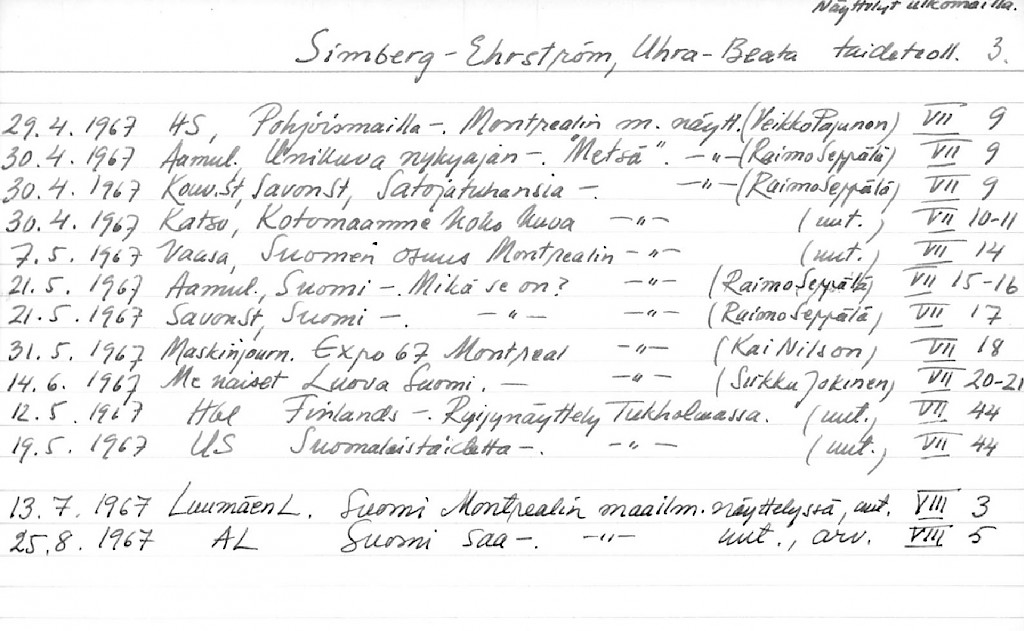 Näyttelyt ulkomailla.
Simberg-Ehrström, Uhra-Beata taideteoll. 3.
29.4.1967 HS, Pohjoismailla-. Montrealin m. näytt. (Veikko Pajunen) VII 9
30.4.1967 Aamul. Unikuva nykyajan-. "Metsä". -"- (Raimo Seppälä) VII 9
30.4.1967 Kouv.St, SavonSt, Satojatuhansia -. -"- (Raimo Seppälä) VII 9
30.4.1967 Katso, Kotomaamme koko kuva -"- (uut.) VII 10-11
7.5.1967 Vaasa, Suomen osuus Montrealin -"- (uut.) VII 14
21.5.1967 Aamul., Suomi-. Mikä se on? -"- (Raimo Seppälä) VII 15-16
21.5.1967 SavonSt, Suomi -. -"- -"- (Raimo Seppälä) VII 17
31.5.1967 Maskinjourn. Expo 67 Montreal -"- (Kai Nilson) VII 18
14.6.1967 Me naiset Luova Suomi. - -"- (Sirkku Jokinen) VII 20-21
12.5.1967 Hbl Finlands -. Ryijynäyttely Tukholmassa. (uut.) VII 44
19.5.1967 US Suomalaistaidetta -. -"- (uut.) VII 44
13.7.1967 Luumäen L. Suomi Montrealin maailm. näyttelyssä, uut. VIII 3
25.8.1967 AL Suomi saa -. -"- uut., arv. VIII 5